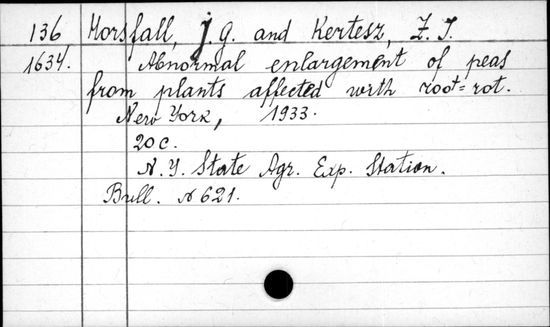 136 Horsfall, J. G. and Kertesz, Z. I.
1634. Abnormal enlargement of peas
from plants affected with root=rot.
New York, 1933.
20 c.
N. Y. State Agr. Exp. Station.
Bull. N 621.